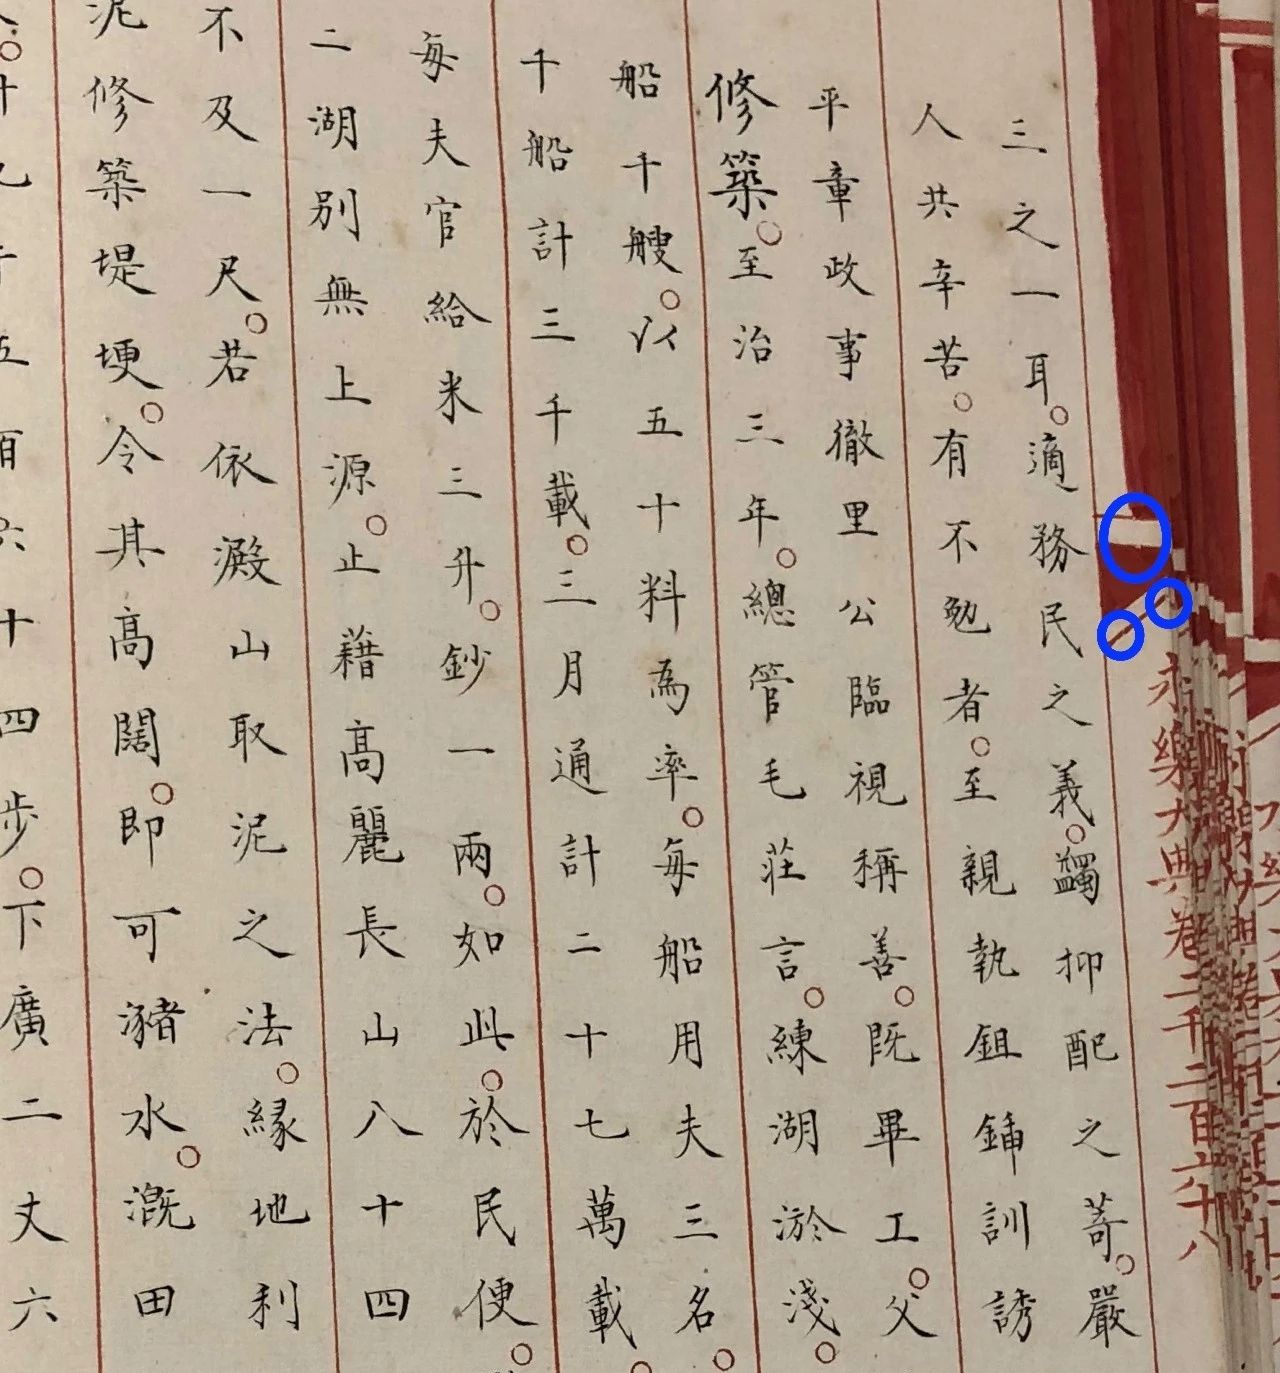 永樂大典卷二千二百六十八
三之一耳。適務民之義。蠲抑配之䓫。嚴
人共辛苦。有不勉者。至親執鉏鍤訓誘
平章政事徹里公臨視稱善。既畢工。父
修築。至治三年。總管毛莊言。練湖淤淺。
船千艘。以五十料為率。每船用夫三名。
千船計三千載。三月通計二十七萬載。
每夫官給米三升。鈔一兩。如此。於民便。
二湖別無上源。止藉高麗長山八十四
不及一尺。若依澱山取泥之法。緣地利
泥修築堤埂。令其高闊。即可瀦水。溉田
五百六十四步。下廣二丈六